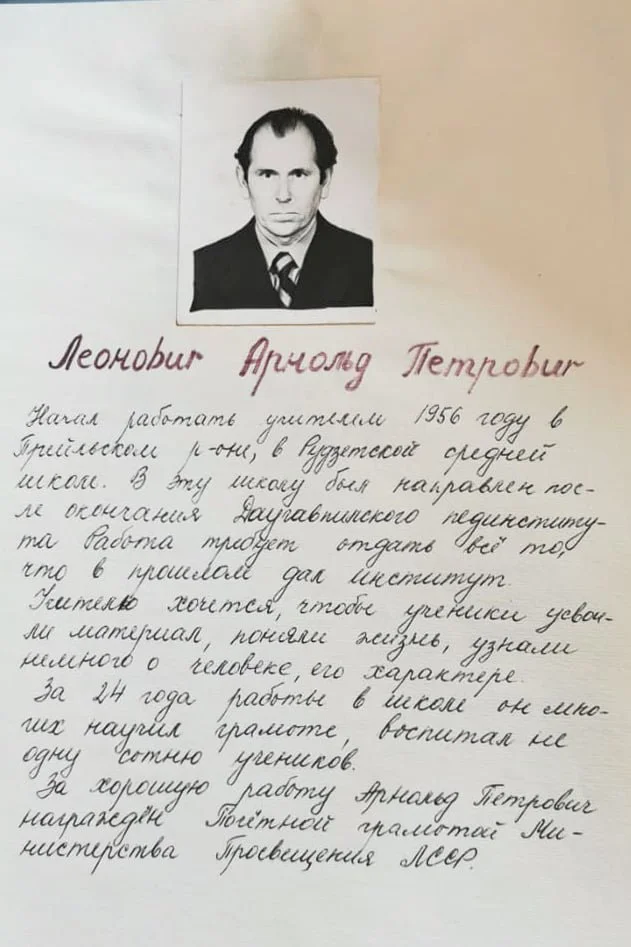 Леонович Арнольд Петрович
Начал работать учителем 1956 году в
Прейльском р-оне, в Рудзетской средней
школе. В эту школу был направлен пос-
ле окончания Даугавпилского пединститу-
та Работа требует отдать всё то,
что в прошлом дал институт.
Учителю хочется, чтобы ученики усвои-
ли материал, поняли жизнь, узнали
немного о человеке, его характере.
За 24 года работы в школе он мно-
гих научил грамоте, воспитал не
одну сотню учеников.
За хорошую работу Арнольд Петрович
награждён Почётной грамотой Ми-
нистерства Просвещения ЛССР.